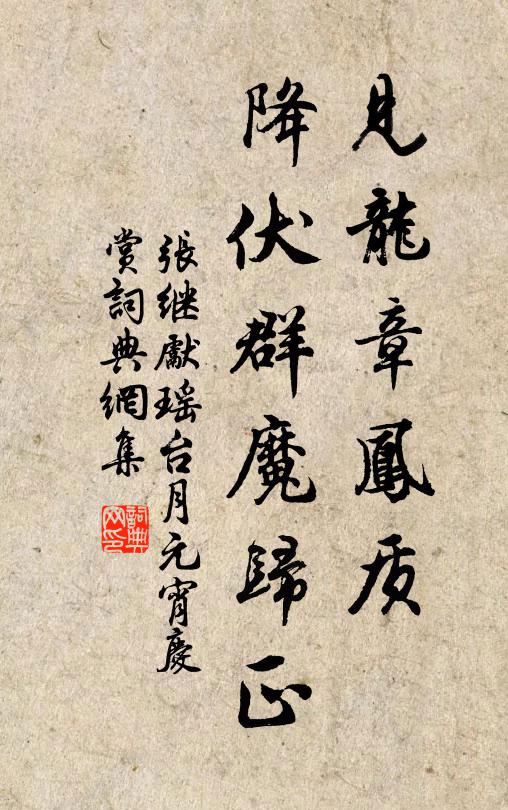 見龍章鳳质
降伏群魔歸正
張继獻瑶台月元宵慶
賞詞典網集
詞典网印